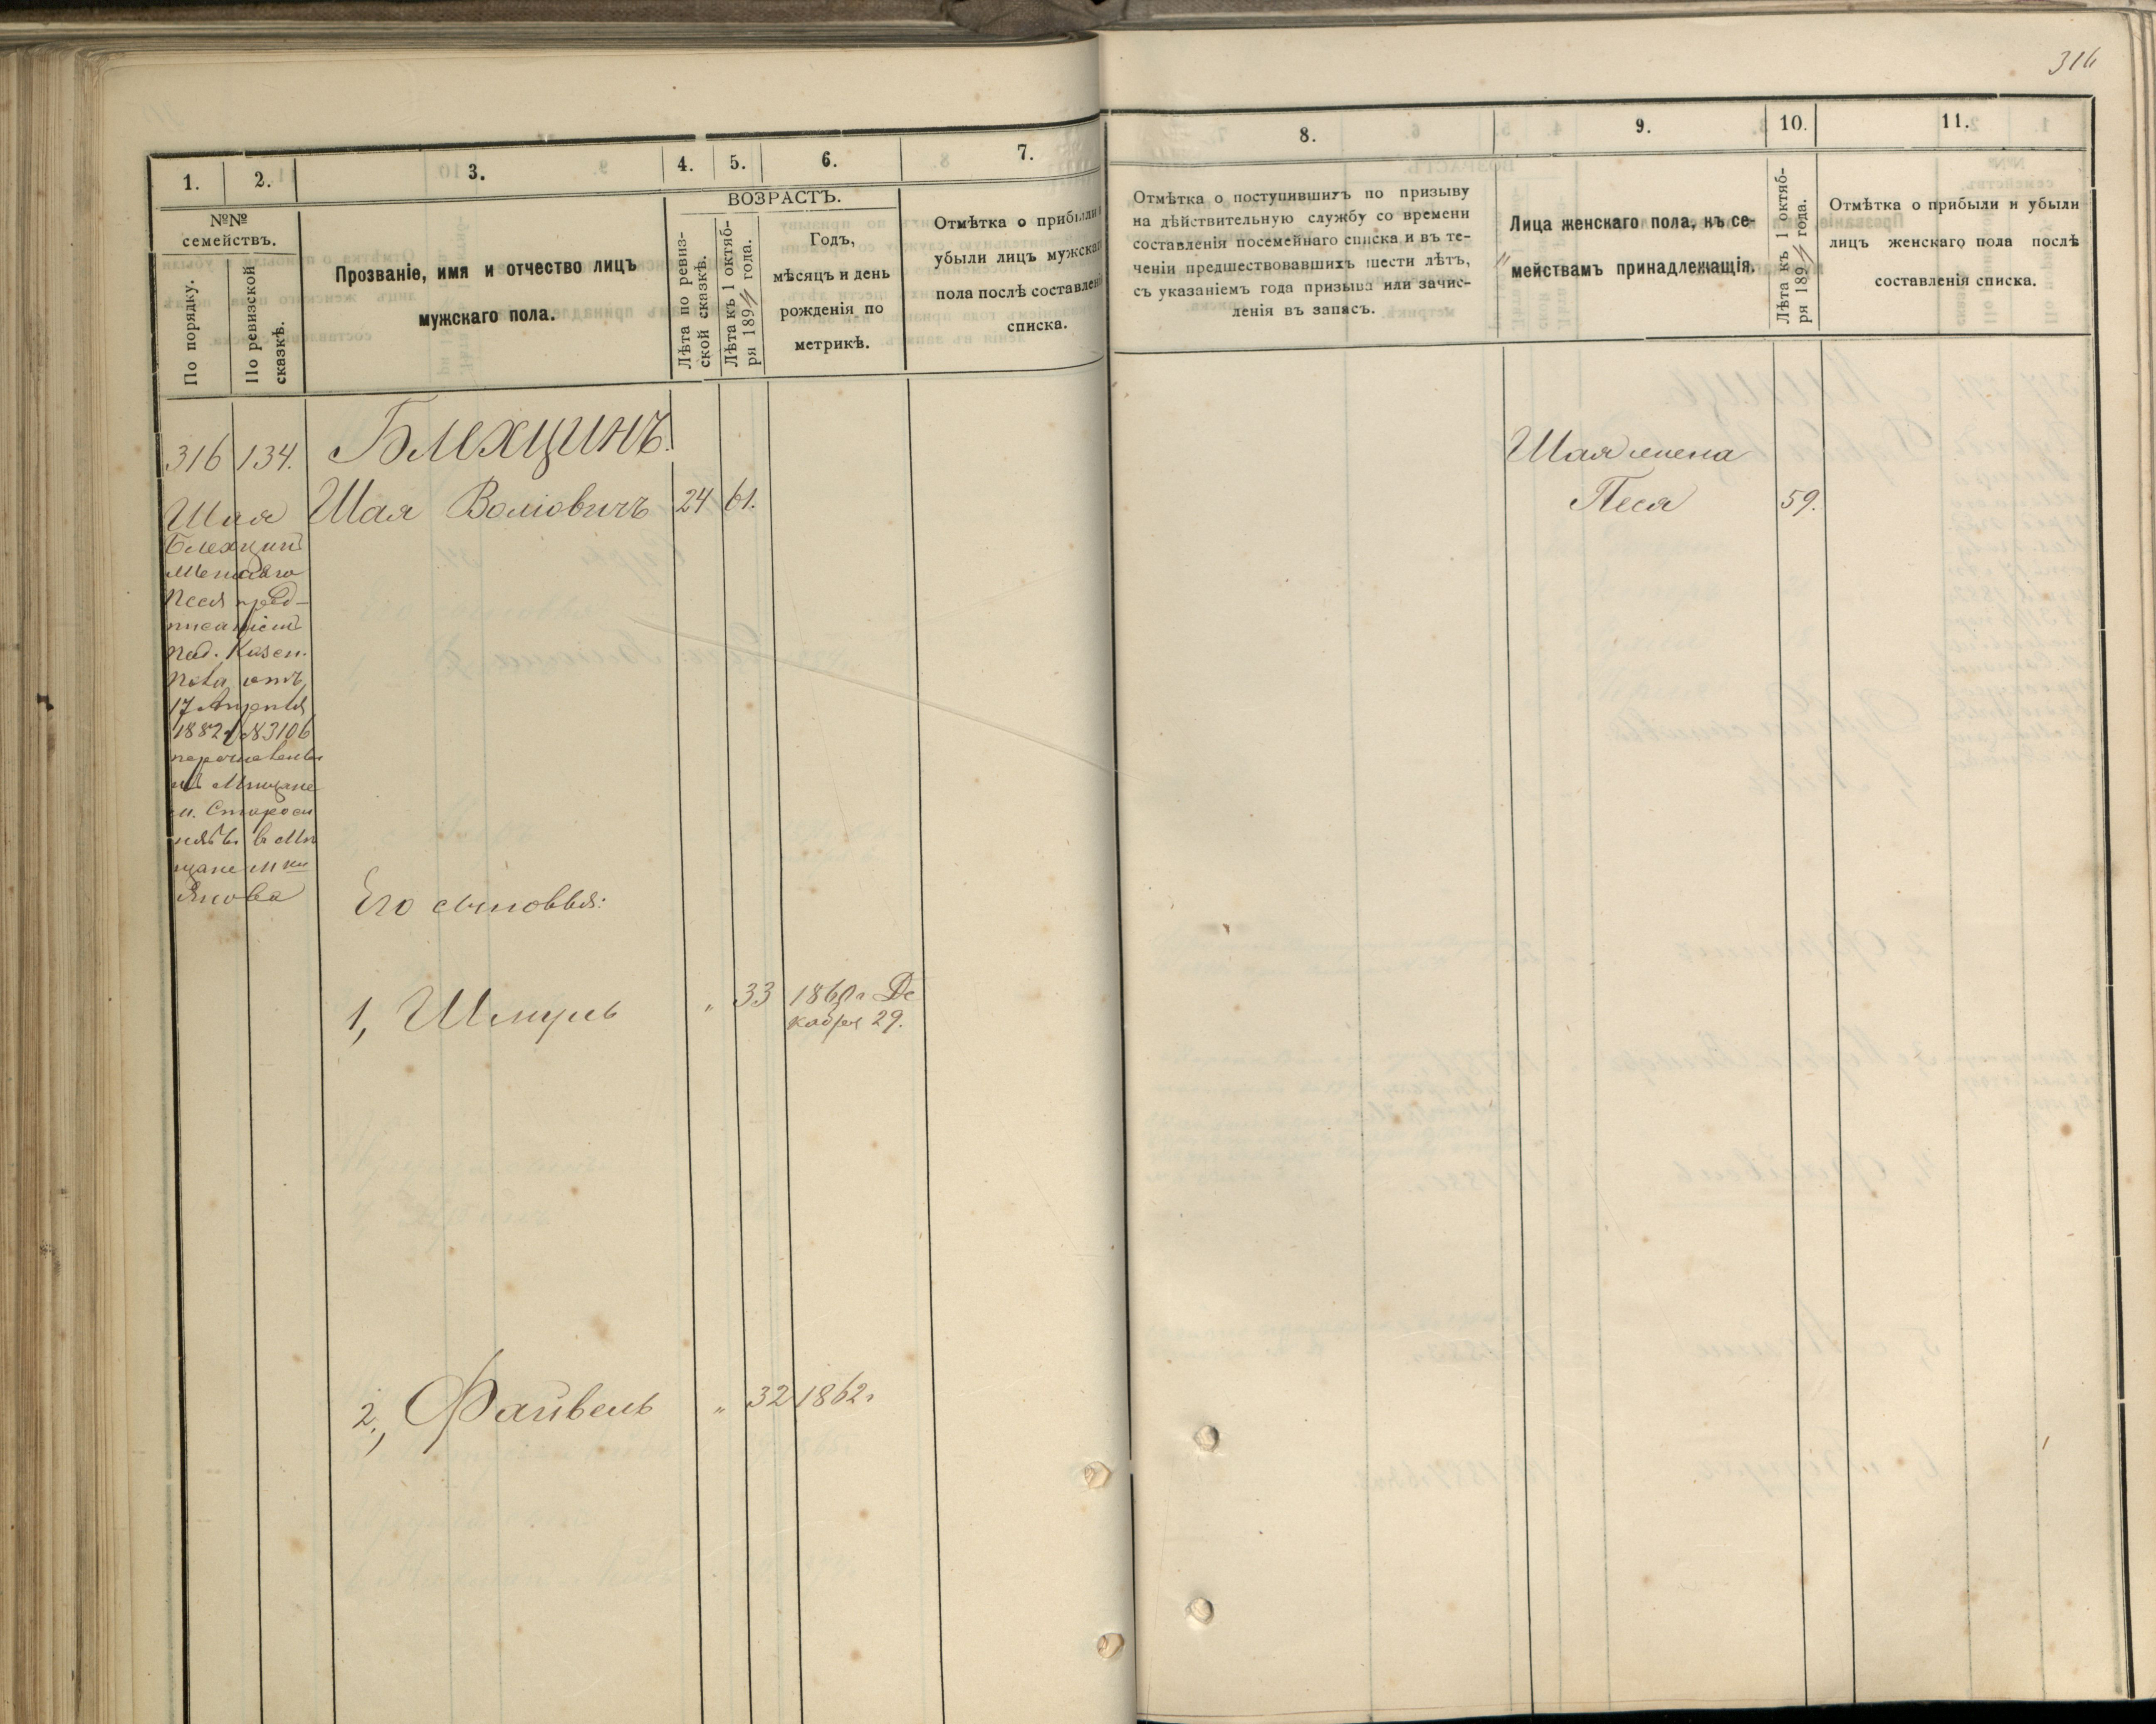 316
1.
2.
3.
4.
5.
6.
7.
№№
семействъ.
По порядку.
По ревизской
сказкѣ.
Прозваніе, имя и отчество лицъ
мужскаго пола.
ВОЗРАСТЪ.
Лѣта по ревиз-
ской сказкѣ.
Лѣта къ 1 октяб-
ря 189 года.
Годъ,
мѣсяцъ и день
рожденія по
метрикѣ.
Отмѣтка о прибыли и
убыли лицъ мужскаго
пола послѣ составленія
списка.
8.
9.
10.
11.
Отмѣтка о поступившихъ по призыву
на дѣйствительную службу со времени
составленія посемейнаго списка и въ те-
ченіи предшествовавшихъ шести лѣтъ,
съ указаніемъ года призыва или зачис-
ленія въ запасъ.
Лица женскаго пола, къ се-
мействамъ принадлежащія.
Лѣта къ 1 октяб-
ря 189 года.
Отмѣтка о прибыли и убыли
лицъ женскаго пола послѣ
составленія списка.
316 134. Блехцинъ.
Шая Волювичъ 24 61.
Шая
Блехцинъ
пред-
писаніемъ
Под. Казен.
Пал. отъ
17 Апрѣля
1882 г №3106
перечисленъ
Мѣщане
м. Староси
нявы в Мѣ
щане м ки
Янова
Его сыновья:
1, Шмуль " 33 1860 г Де
кабря 29.
2, Файвель " 32 1862 г
Шая жена
Песя 59.